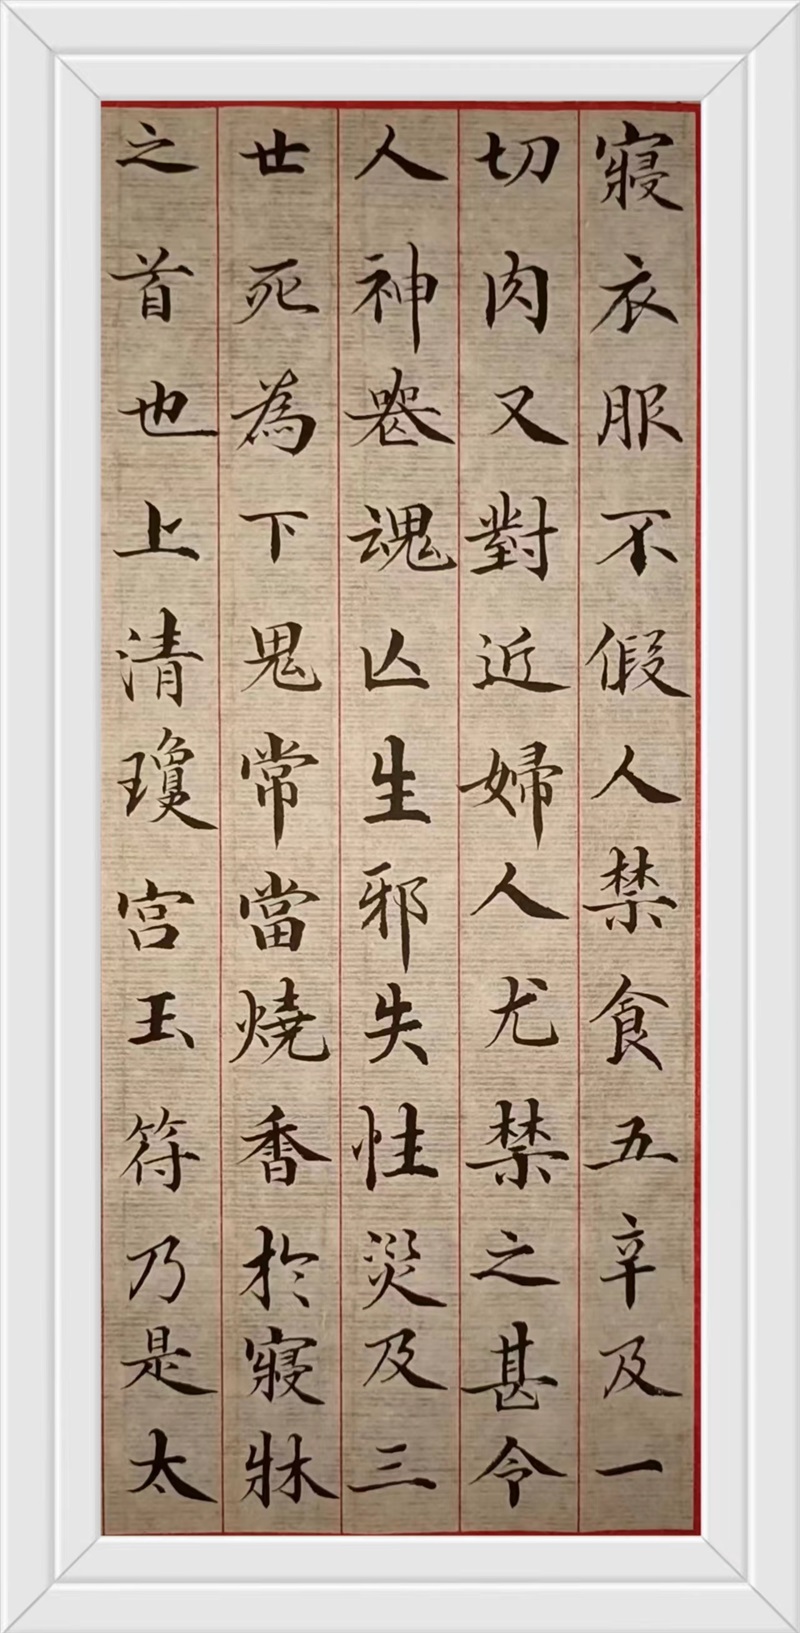 寢衣服不假人禁食五辛及一
切肉又對近婦人尤禁之甚令
人神喪魂亡生邪失性災及三
世死為下鬼常當燒香於寢牀
之首也上清瓊宮玉符乃是太